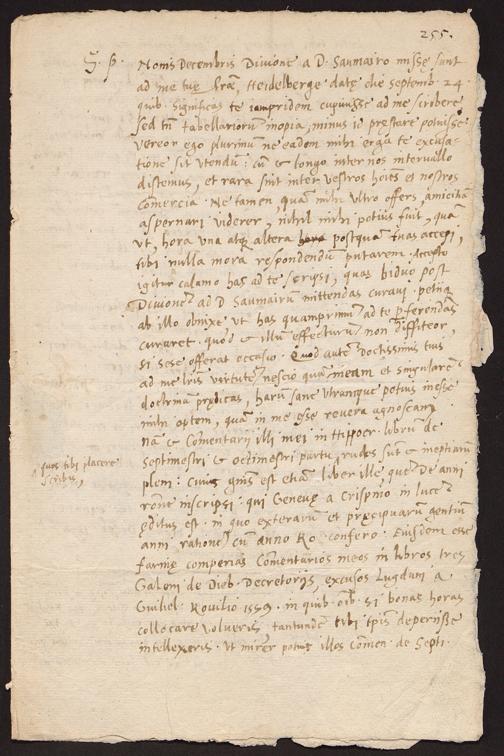 255.
S. p. Nonis Decembris Divione a D. Saumairo missę sunt
ad me tuę lrae Heidelbergę datę die septemb. 24
quib. significas te iampridem cupivisse ad me scribere
sed tn tabellariorum inopia, minus id pręstare potuisse
vereor ego plurimum ne eadem mihi erga te excusa-
tione sit utendum: cum & longo inter nos intervallo
distemus, et rara sint inter vestros hoies et nostros
comercia. Ne tamen, quam mihi ultro offers, amicitiam
aspernari viderer, nihil mihi potius fuit, quam
ut, hora una atque altera postquam tuas accepi,
tibi nulla mora respondendum putarem. Accepto
igitur calamo has ad te scripsi, quas biduo post
Divionem ad D. Saumairum mittendas curavi. petiiq
ab illo obnixe ut has quamprimum ad te perferendas
curaret. quod & illum effecturum non diffiteor,
si sese offerat occasio. Quod autem doctissimis tuis
ad me lris virtutem nescio quam meam et singularem
doctrinam prędicas, harum sane utranque potius inesse
mihi optem, quam in me esse revera agnoscam
nam & Comentarii illi mei in Hippocr. librum de
septimestri & octimestri partu, rudes sunt & ineptiarum
quos tibi placere
scribis,
pleni: cuius gnis est etiam liber ille, quem De anni
ratione inscripsi: qui Genevę a Crispino in lucem
ęditus est. in quo exterarum et pręcipuarum gentium
anni rationem cum anno Ro. confero. Eiusdem esse
farinę comperias Comentarios meos in libros tres
Galeni de Dieb. Decretoriis, excusos Lugduni a
Guliel. Rovilio 1559. in quib. oib. si bonas horas
collocare volueris tantundem tibi tpis deperiisse
intellexeris. Ut mirer potius illos Comen. de Septi-